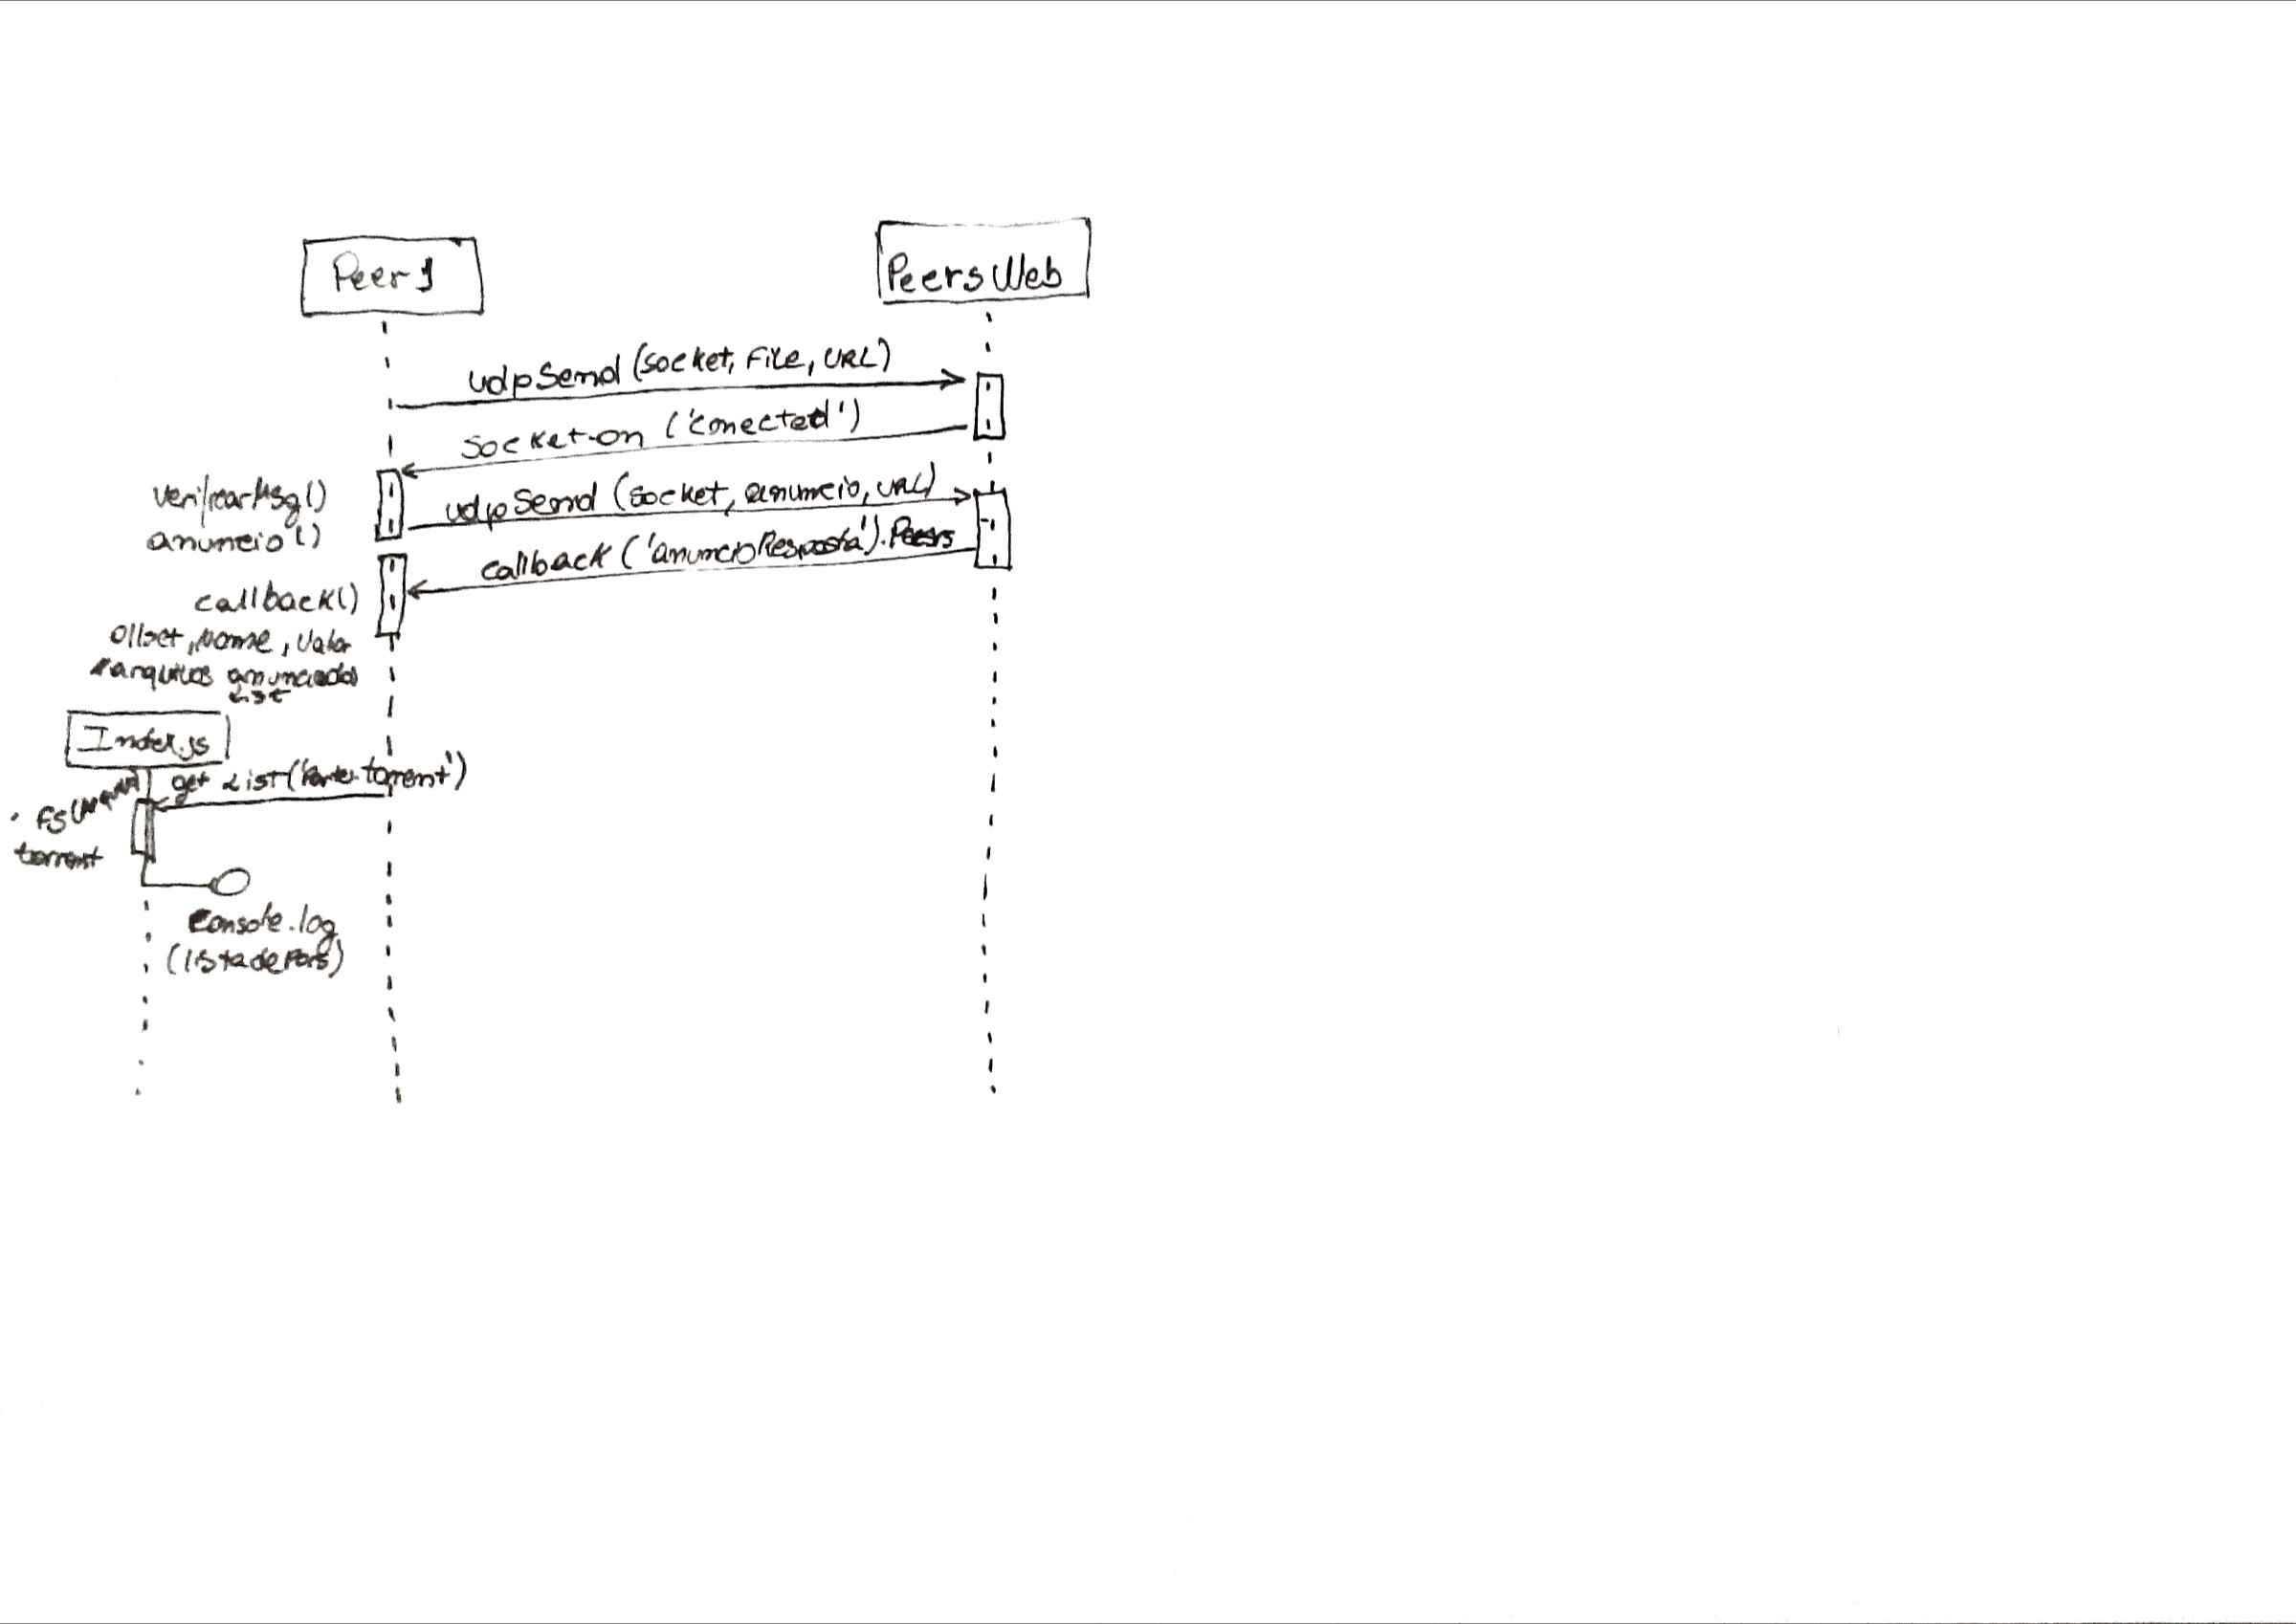 Peer 1
Peers Web
udpSend (socket, File, URL)
Socket.on ('conected')
verificarMsg()
anuncio()
udpSend (socket, anuncio, URL)
callback ('anuncioResposta').Peers
callback()
offset, nome, valor
arquivos anunciados
List
Index.js
get List('torrent')
FS(
torrent
Console.log
(lista de Pars)